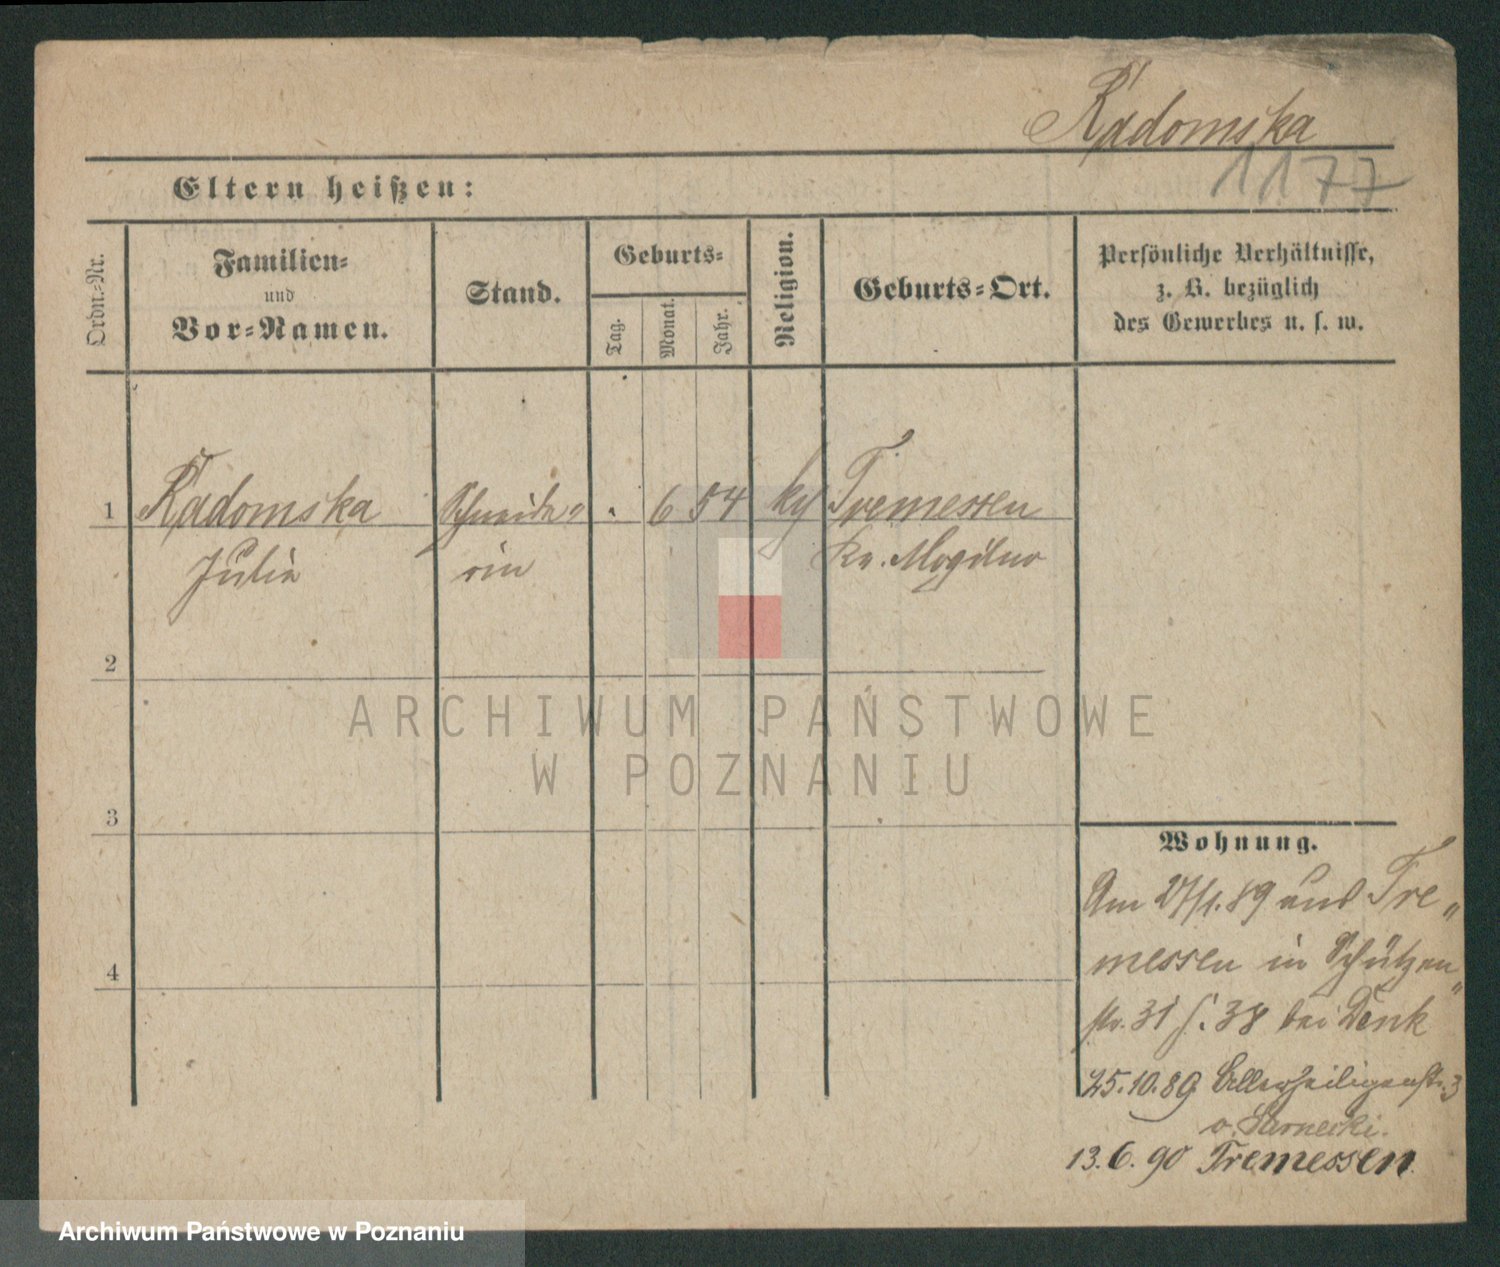 Radomska
1177
Eltern heißen:
Ordn.-Nr.
Familien-
und
Vor-Namen.
Stand.
Geburts-
Tag.
Monat.
Jahr.
Religion.
Geburts-Ort.
Persönliche Verhältnisse,
z. B. bezüglich
des Gewerbes u. s. w.
1 Radomska Schneide- 6 54 Tremessen
Julia rin Kr. Mogilno
2
3
4
Wohnung.
Am 27/1.89 aus Tre-
messen in Schützen-
str. 31 bei Denk
25.10.89 Allerheiligenstr. 3
13.6.90 Tremessen
ARCHIWUM PAŃSTWOWE
W POZNANIU
Archiwum Państwowe w Poznaniu